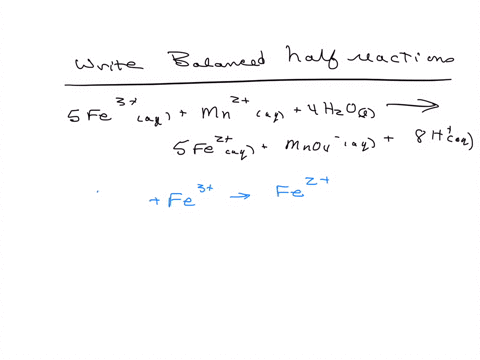 Write Balanced half reactions
5Fe³⁺(aq) + Mn²⁺(aq) + 4H₂O(l) →
5Fe²⁺(aq) + MnO₄⁻(aq) + 8H⁺(aq)
+ Fe³⁺ → Fe²⁺